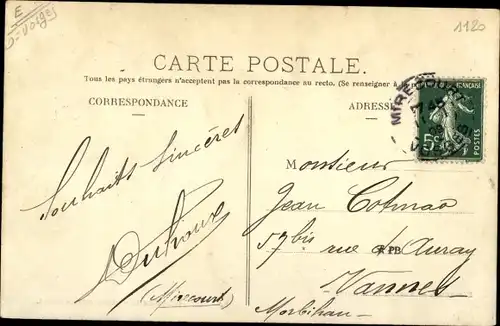 E
Vosges
1120
CARTE POSTALE.
Tous les pays étrangers n'acceptent pas la correspondance au recto. (Se renseigner à la
CORRESPONDANCE
ADRESSE
MIRECOURT
VOSGES
FRANÇAISE
5c
POSTES
Souhaits sincères
(Mirecourt)
Monsieur
Jean Cotmao
57 bis rue d'Auray
Vannes
Morbihan